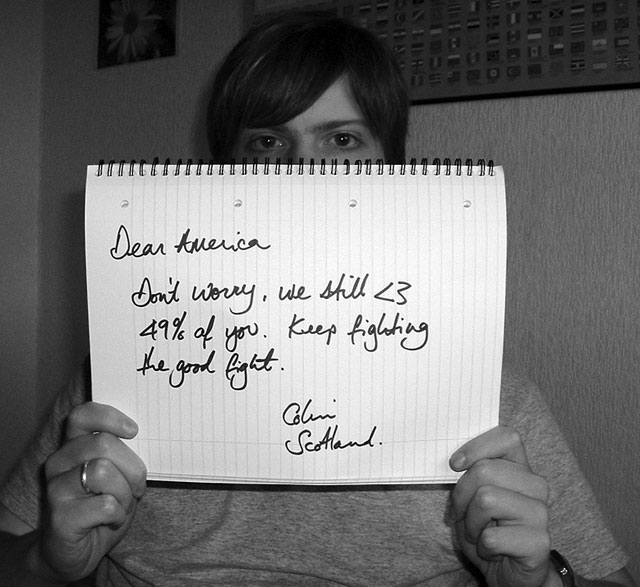 Dear America
Don't worry, we still <3
49% of you. Keep fighting
the good fight.
Colin
Scotland.